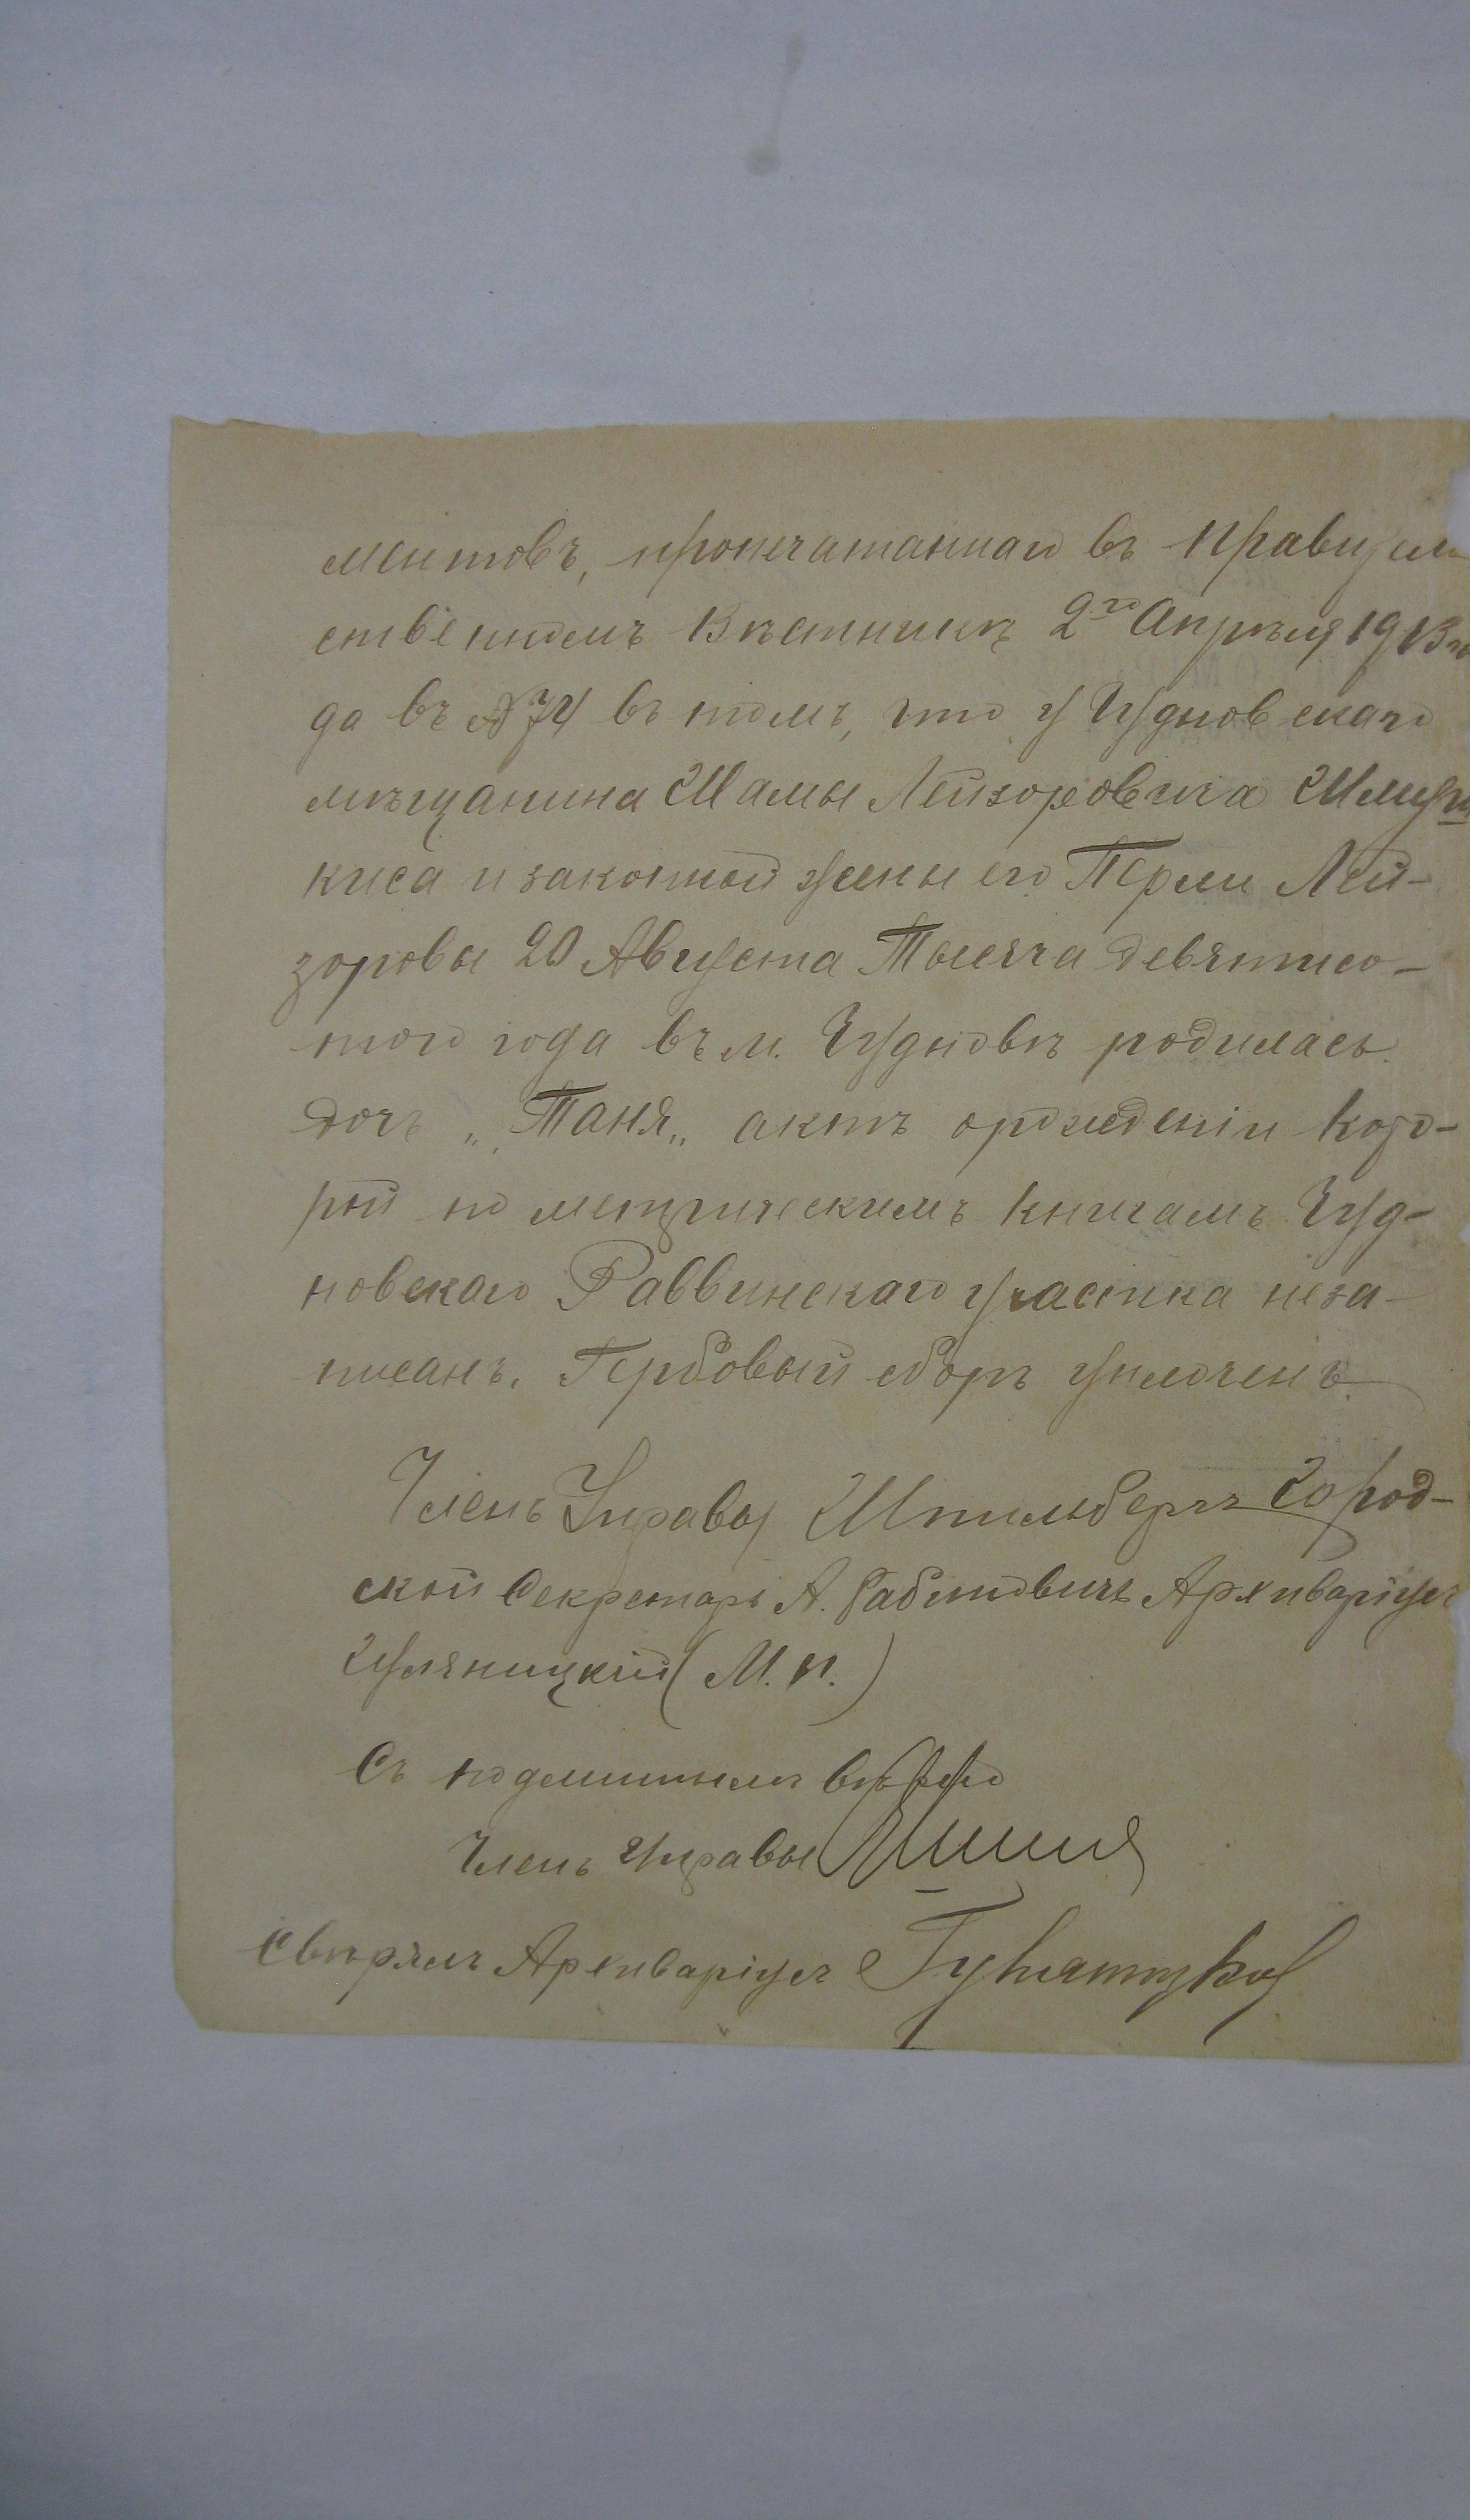 ментовъ, пропечатаннаго въ Правител
ственномъ Вѣстникѣ 2го Апрѣля 1913 го
да въ № 74 въ томъ, что у Чудновскаго
мѣщанина Шамы Лейзоровича
киса и законной жены его Перли Лей-
зоровы 20 Августа Тысяча девятисо-
того года въ м. Чудновѣ родилась
дочь „Таня„ актъ о рожденіи кото-
рой по метрическимъ книгамъ Чуд-
новскаго Раввинскаго участка неза-
писанъ. Гербовый сборъ уплоченъ.
Членъ Управы Штильбергъ Город-
ской Секретарь А. Рабиновичъ Архиваріусъ
(М.П.)
Съ подлиннымъ вѣрно
Членъ Управы
Свѣрялъ Архиваріусъ